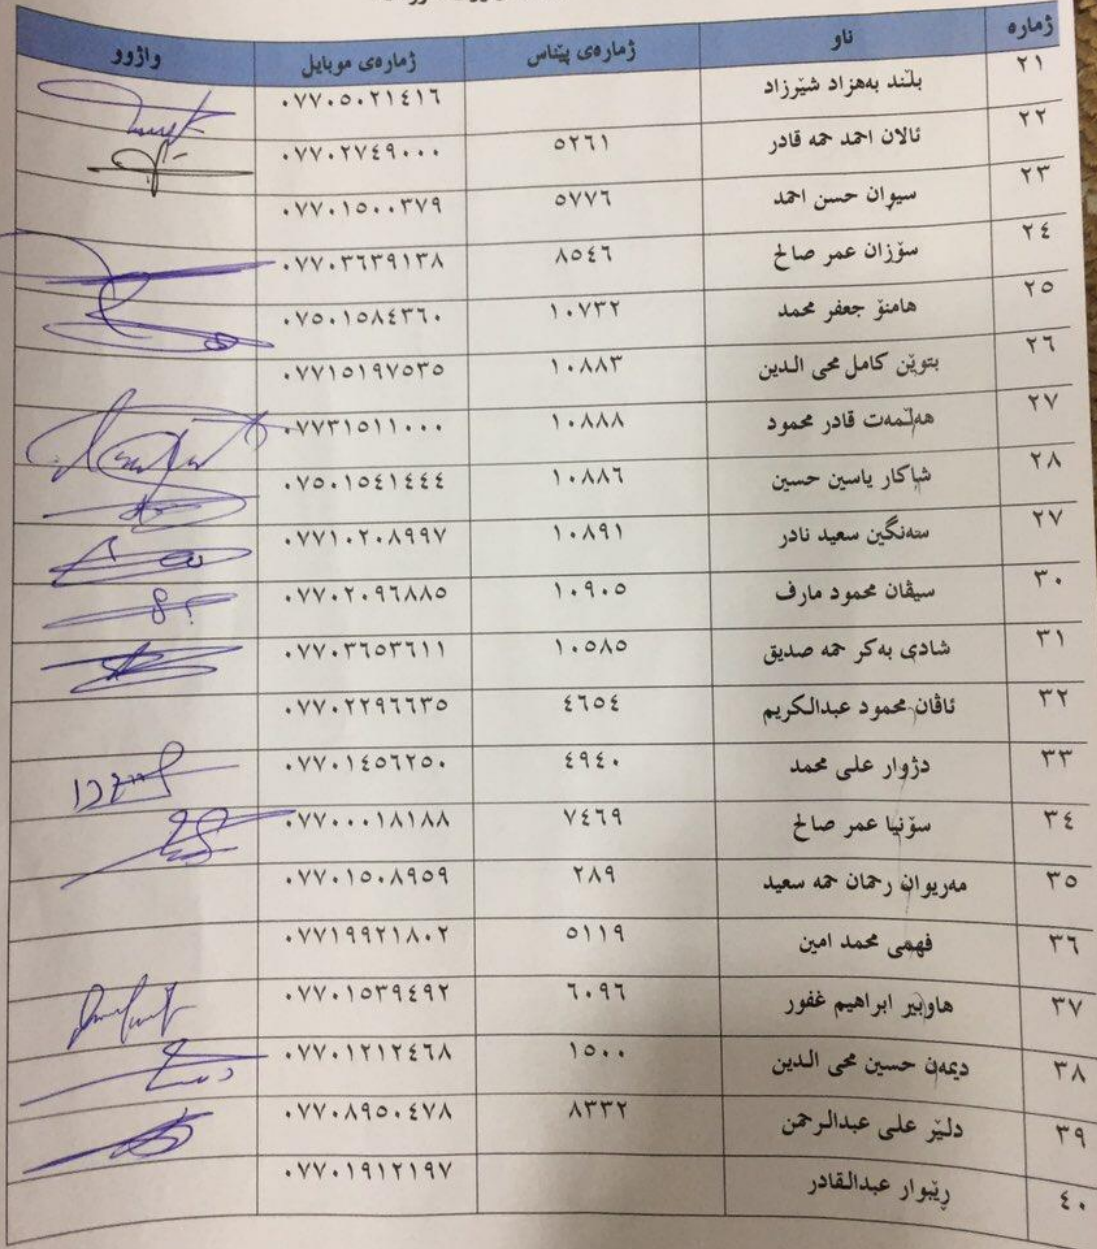 ژمارە ناو ژمارەی پێناس ژمارەی موبایل واژوو
٢١ بڵند بەهزاد شێرزاد ٠٧٧٠٥٠٢١٤١٦
٢٢ ئالان احمد حمە قادر ٥٢٦١ ٠٧٧٠٢٧٤٩٠٠٠
٢٣ سیوان حسن احمد ٥٧٧٦ ٠٧٧٠١٥٠٠٣٧٩
٢٤ سۆزان عمر صالح ٨٥٤٦ ٠٧٧٠٣٦٣٩١٣٨
٢٥ هامنۆ جعفر محمد ١٠٧٣٢ ٠٧٥٠١٥٨٤٣٦٠
٢٦ بتوێن کامل محی الدین ١٠٨٨٣ ٠٧٧١٥١٩٧٥٣٥
٢٧ هەڵمەت قادر محمود ١٠٨٨٨ ٠٧٧٣١٥١١٠٠٠
٢٨ شاکار یاسین حسین ١٠٨٨٦ ٠٧٥٠١٥٤١٤٤٤
٢٧ سەنگین سعید نادر ١٠٨٩١ ٠٧٧١٠٢٠٨٩٩٧
٣٠ سیڤان محمود مارف ١٠٩٠٥ ٠٧٧٠٢٠٩٦٨٨٥
٣١ شادی بەکر حمە صدیق ١٠٥٨٥ ٠٧٧٠٣٦٥٣٦١١
٣٢ ئاڤان محمود عبدالکریم ٤٦٥٤ ٠٧٧٠٢٢٩٦٦٣٥
٣٣ دژوار علی محمد ٤٩٤٠ ٠٧٧٠١٤٥٦٢٥٠
٣٤ سۆنیا عمر صالح ٧٤٦٩ ٠٧٧٠٠٠١٨١٨٨
٣٥ مەریوان رحمان حمە سعید ٢٨٩ ٠٧٧٠١٥٠٨٩٥٩
٣٦ فهمی محمد امین ٥١١٩ ٠٧٧١٩٩٢١٨٠٢
٣٧ هاوبیر ابراهیم غفور ٦٠٩٦ ٠٧٧٠١٥٣٩٤٩٢
٣٨ دیمەن حسین محی الدین ١٥٠٠ ٠٧٧٠١٢١٢٤٦٨
٣٩ دلێر علی عبدالرحمن ٨٣٣٢ ٠٧٧٠٨٩٥٠٤٧٨
٤٠ ڕێبوار عبدالقادر ٠٧٧٠١٩١٢١٩٧